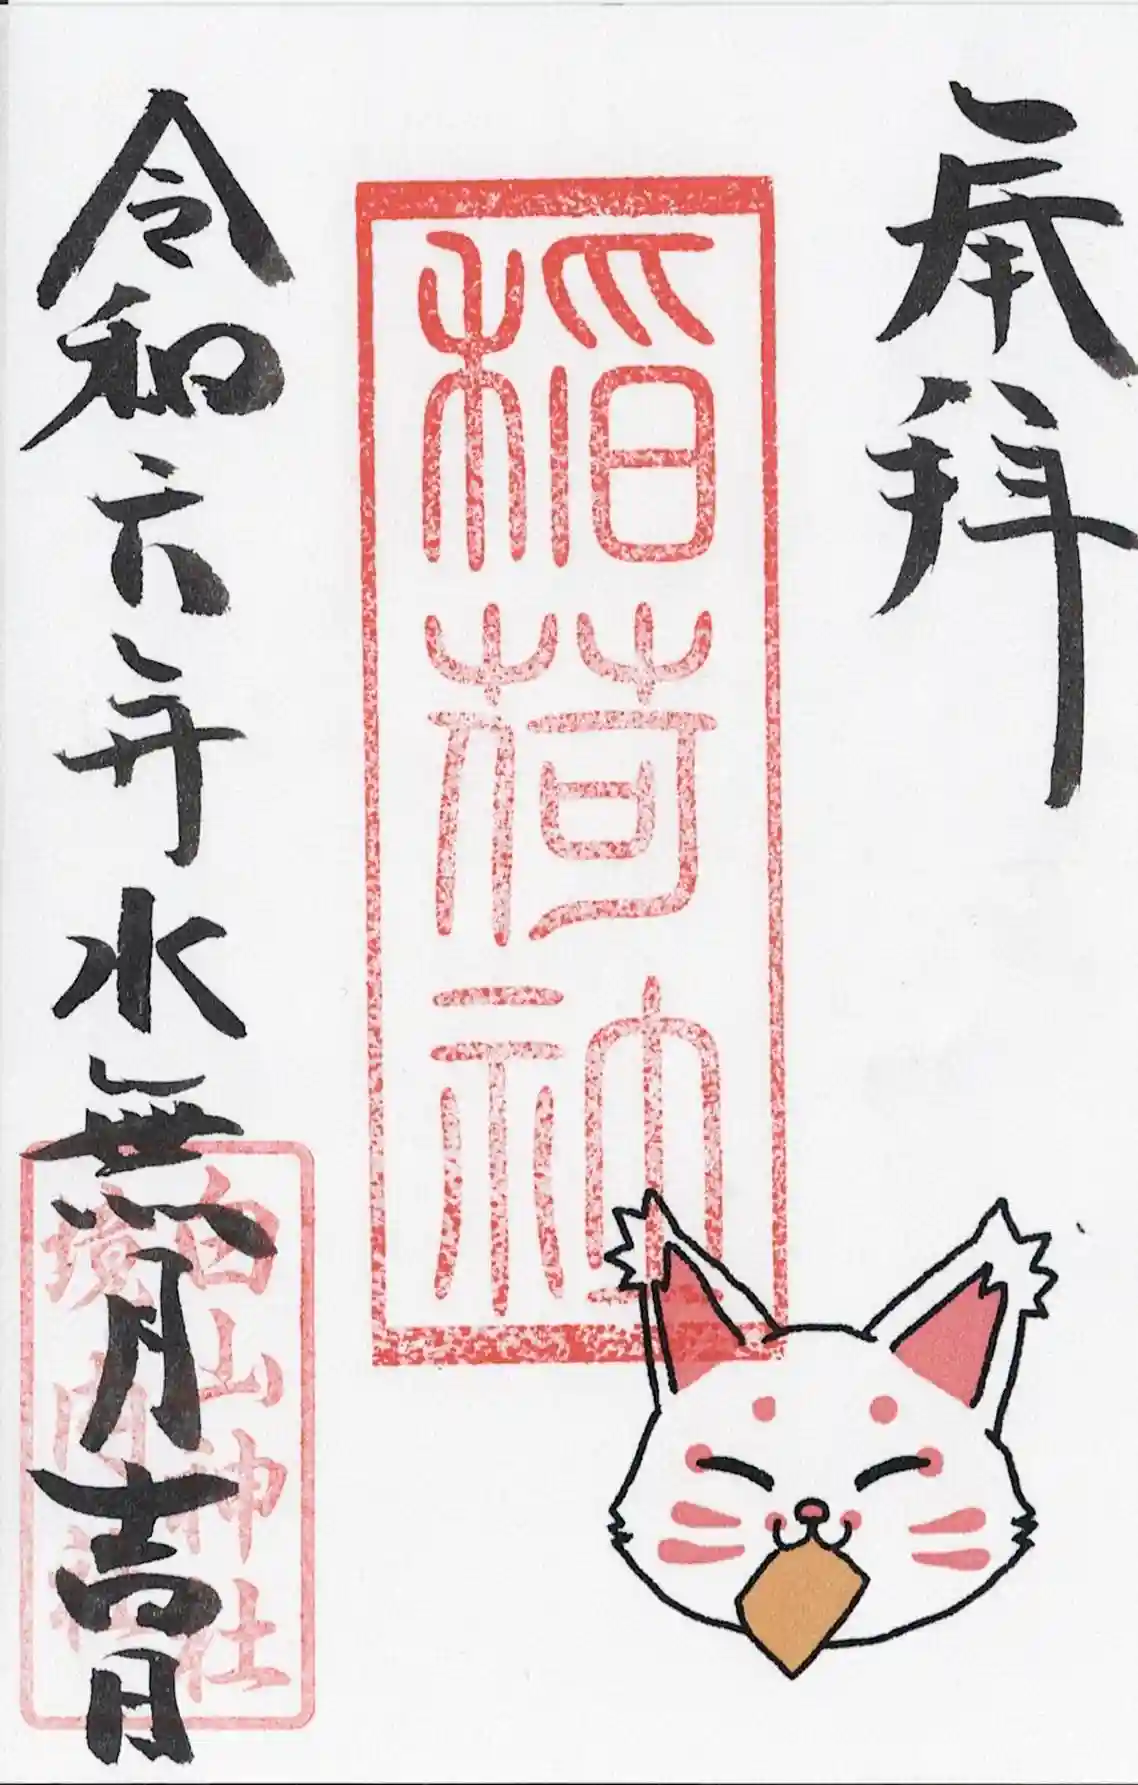 奉拝
稲荷社
白山神社
境内社
令和六年水無月吉日